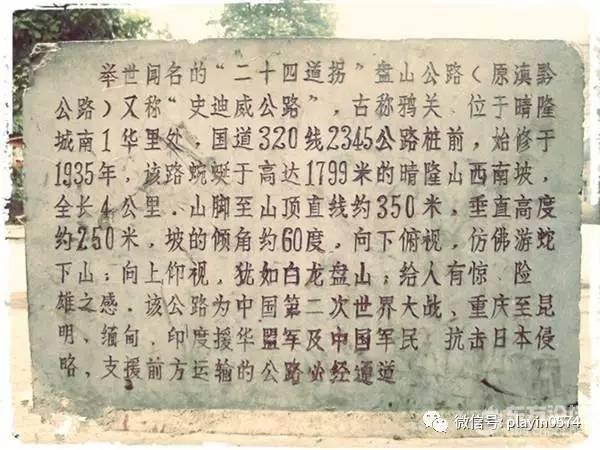 举世闻名的“二十四道拐”盘山公路（原滇黔
公路）又称“史迪威公路”，古称鸦关．位于晴隆
城南1华里处，国道320线2345公路桩前，始修于
1935年，该路蜿蜒于高达1799米的晴隆山西南坡，
全长4公里．山脚至山顶直线约350米，垂直高度
约250米，坡的倾角约60度，向下俯视，仿佛游蛇
下山；向上仰视，犹如白龙盘山；给人有惊、险
雄之感．该公路为中国第二次世界大战，重庆至昆
明、缅甸、印度援华盟军及中国军民 抗击日本侵
略，支援前方运输的公路必经通道
微信号: playin0574